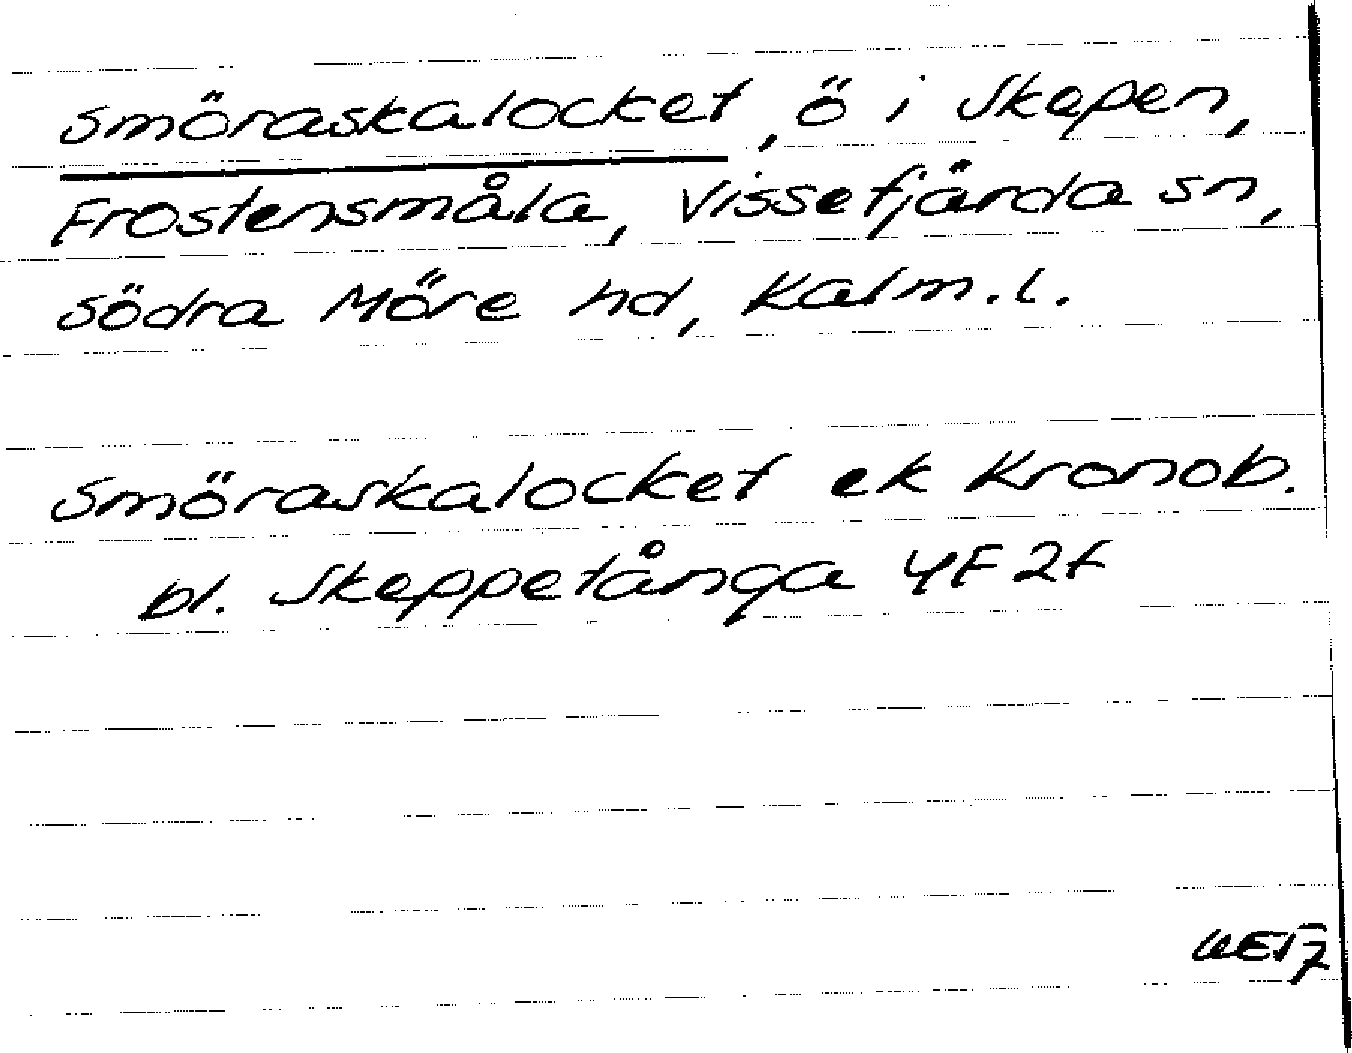 Smöraskalocket, ö i Skepen,
Frostensmåla, Vissefjärda sn,
södra Möre hd, Kalm.l.
Smöraskalocket ek Kronob.
bl. Skeppetånga 4F 2f